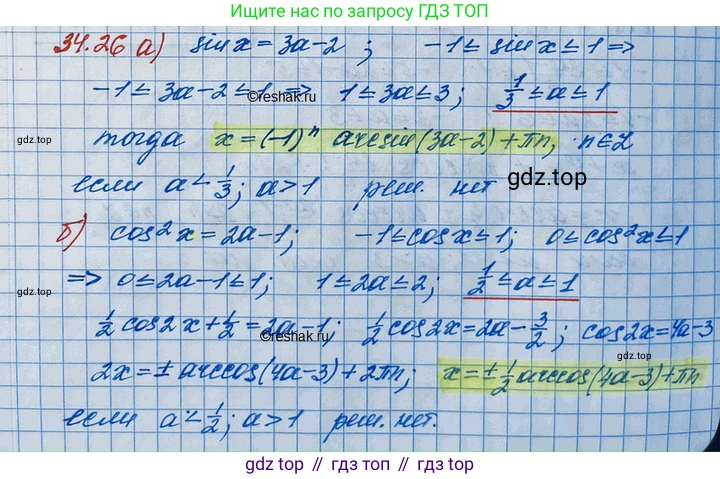 Ищите ещё по запросу ГДЗ ТОП
34.26 а) sin x = 3a-2 ; -1 ≤ sin x ≤ 1 =>
-1 ≤ 3a-2 ≤ 1 => 1 ≤ 3a ≤ 3; 1/3 ≤ a ≤ 1
©reshak.ru
gdz.top
тогда x = (-1)ⁿ arcsin(3a-2) + πn, n∈Z
если a < 1/3; a > 1 реш. нет
gdz.top
б) cos²x = 2a-1; -1 ≤ cos x ≤ 1; 0 ≤ cos²x ≤ 1
=> 0 ≤ 2a-1 ≤ 1; 1 ≤ 2a ≤ 2; 1/2 ≤ a ≤ 1
gdz.top
1/2 cos2x + 1/2 = 2a-1; 1/2 cos2x = 2a - 3/2; cos2x = 4a-3
©reshak.ru
gdz.top
2x = ± arccos(4a-3) + 2πn; x = ± 1/2 arccos(4a-3) + πn
если a < 1/2; a > 1 реш. нет.
gdz top // гдз топ // gdz.top